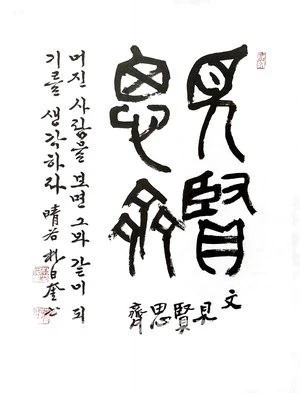 見賢
思齊
文見賢思齊
어진 사람을 보면 그와 같이 되
기를 생각하자 晴若